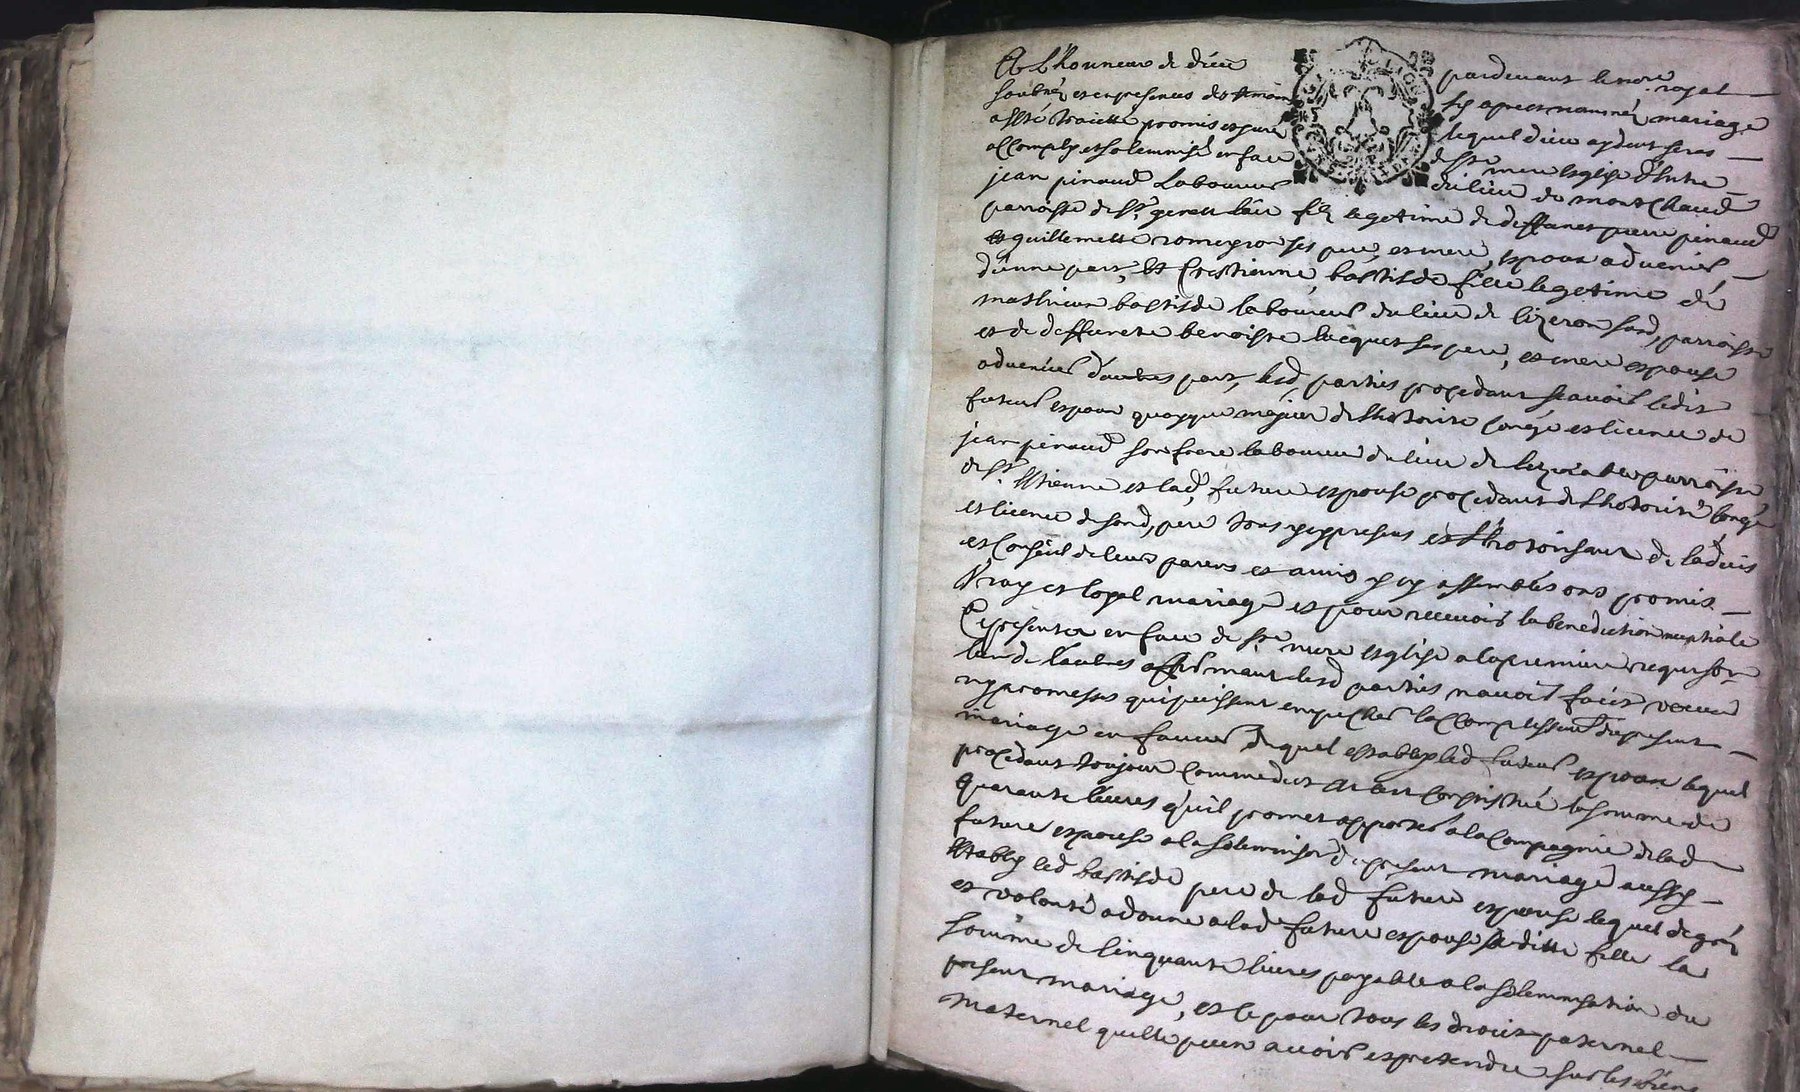 A L'honneur de dieu pardevant le no.re royal
soubné et en presences des temoins sy apres nommés mariage
a esté traicté promis et juré lequel dieu aydent seras
accomply et solemnisé en face de ste mere esglise Entre
jean pinaud Laboureur du lieu de montchaud
parroisse de St genest fils legetime de deffunet pierre pinaud
et guillemette romeyron ses pere, et mere, espoux advenir
d'unne part, Et Crestienne bastisde fille legetime de
mathieu bastisde laboureur du lieu de parroisse
et de deffuncte benoiste ses pere, et mere espouse
advenir d'autres part, lesd, parties procedant scavoir ledit
futeur espoux quoyque majeur de lhotorité congé et licence de
jean pinaud son frere laboureur du lieu de parroisse
de St Ettienne et lad, future espouse procedant de Lhotorité congé
et licence de sond, pere tous yppresens et Lhotorisant de ladvis
et Conseil de leurs parens et amis y sy assemblés ons promis
Vray et loyal mariage et pour recevoir la benediction nuptiale
se presenter en face de ste mere esglise a la premiere requison
lun de lautres affirmant lesd parties navoir faict veux
ny promesses qui puissent empecher laccomplissent du present
mariage en faveur duquel establyled futeur espoux lequel
procedant toujour comme dict est cest Constitué la somme de
quarante livres qu'il promet apporter a la compagnie delad
future espouse a la solemnison du present mariage aussy
Estably led bastisde pere de lad future espouse lequel de gré
et volonté a donne a lad future espouse sa ditte fille la
somme de Cinquante livres payable a la solemnisation du
present mariage, et ce pour tous les droict paternel
maternel quelle peux avoir et pretendre sur les biens